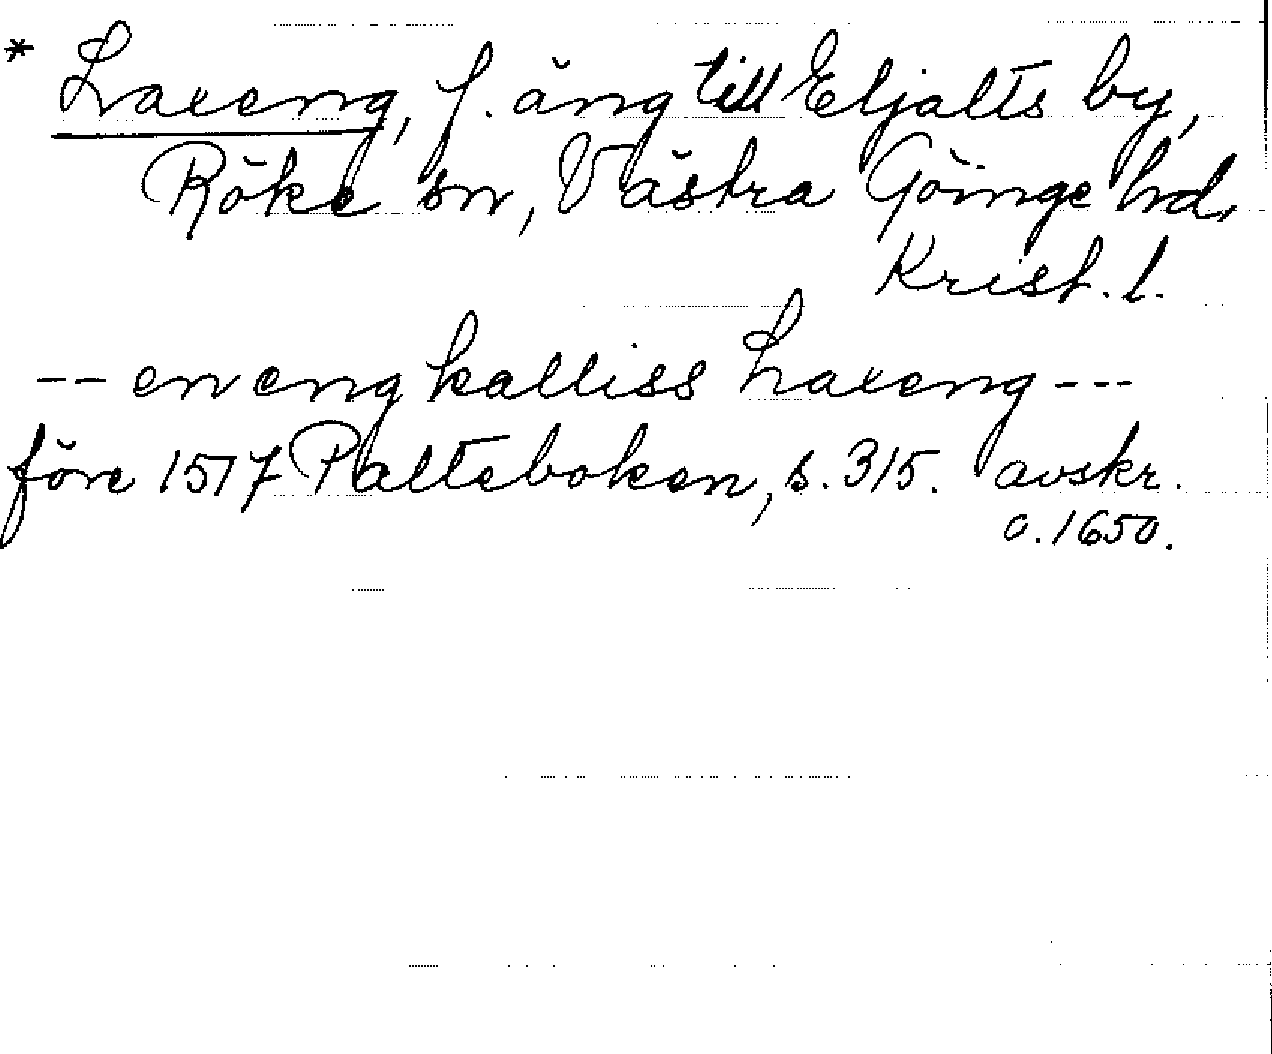 * Laxeng, f. äng till Eljalts by,
Röke sn, Västra Göinge hd,
Krist. l.
-- en eng kalliss Laxeng ---
före 1517 Palteboken, s. 315. avskr.
c. 1650.